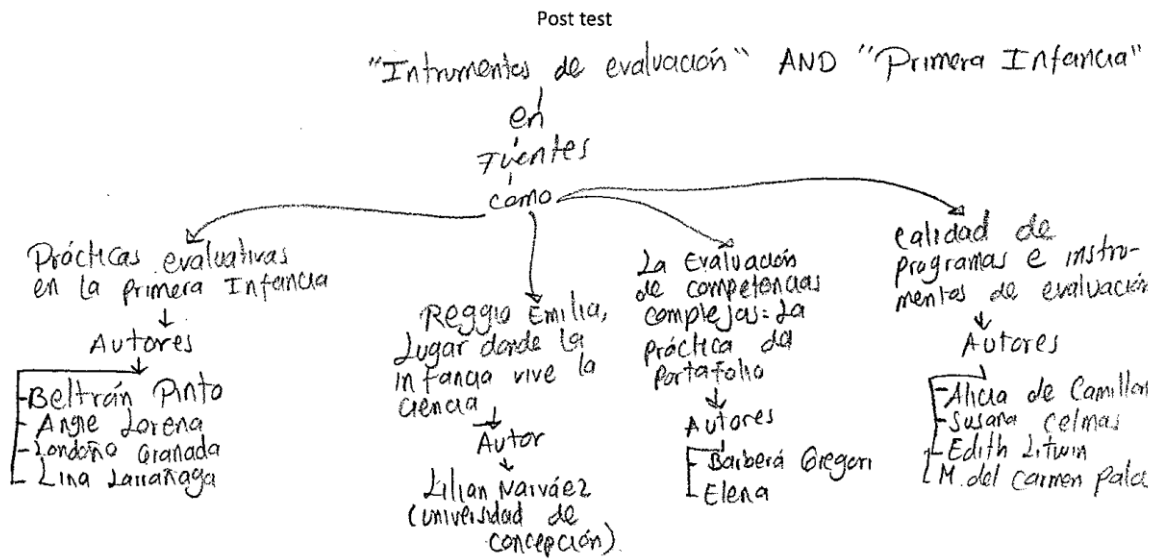 Post test
"Intrumentos de evaluación" AND "Primera Infancia"
en
Fuentes
como
Prácticas evaluativas
en la primera Infancia
Autores
-Beltrán Pinto
- Angie Lorena
-Londoño Granada
- Lina Larrañaga
Reggio Emilia,
Lugar donde la
infancia vive la
ciencia
Autor
Lilian Narváez
(universidad de
concepción).
La Evaluación
de competencias
complejas: La
práctica del
Portafolio
Autores
- Barberá Gregori
- Elena
calidad de
programas e instru-
mentos de evaluación
Autores
-Alicia de Camillon
-Susana Celmas
-Edith Litwin
-M. del Carmen Palou